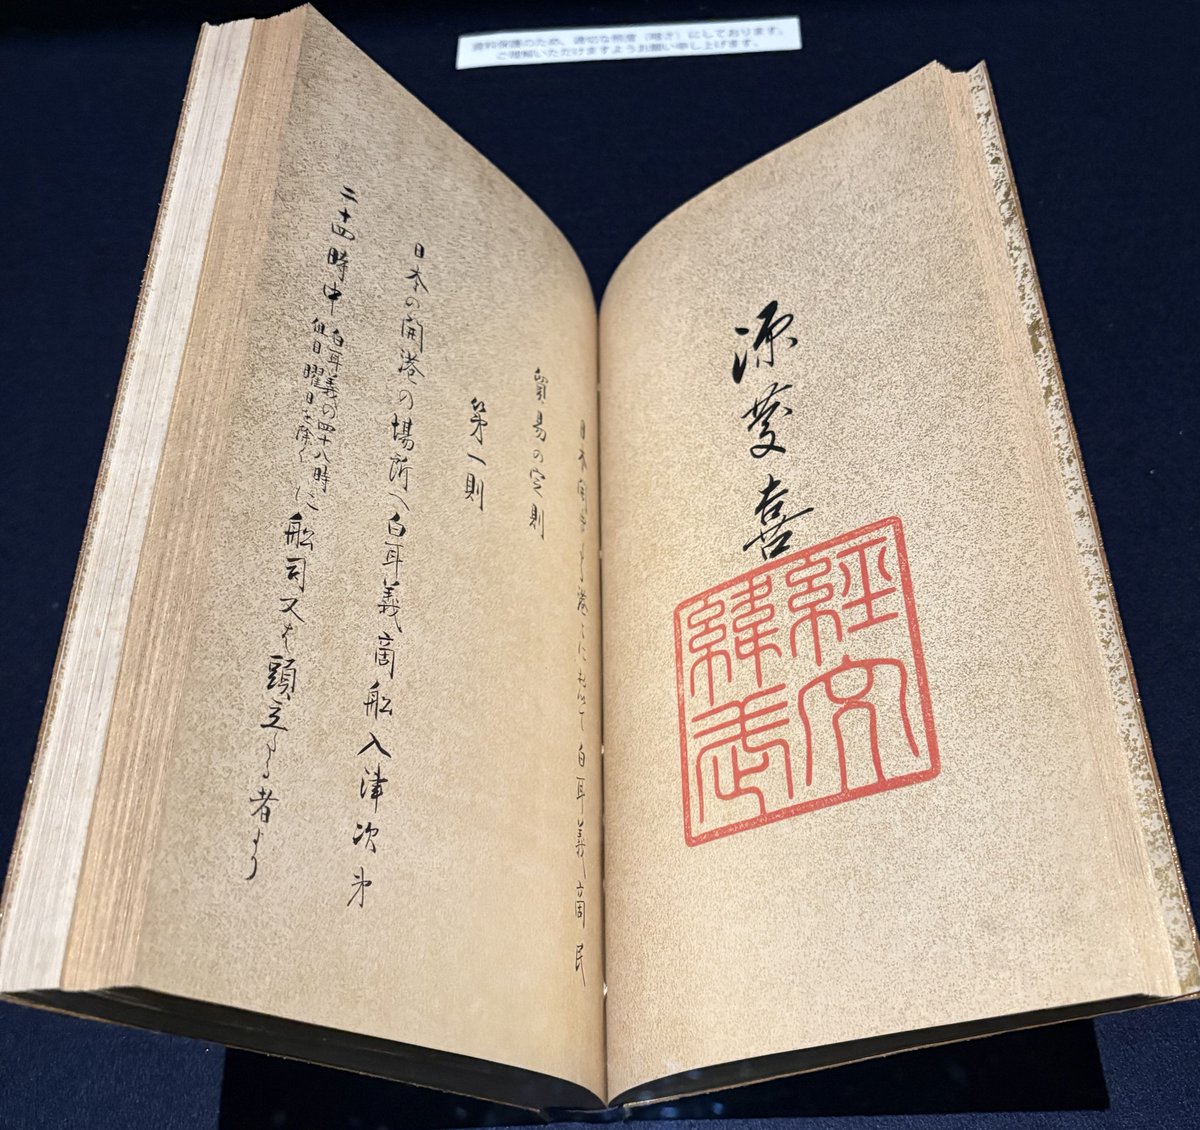 資料保護のため、適切な照度(暗さ)にしております。
ご理解いただけますようお願い申し上げます。
源慶喜
經文
緯武
日本開きたる港々において白耳義商民
貿易の定則
第一則
日本の開港の場所へ白耳義商船入津次第
二十四時中
白耳義の四十八時
但日曜日を除く
に船司又は頭立たる者より